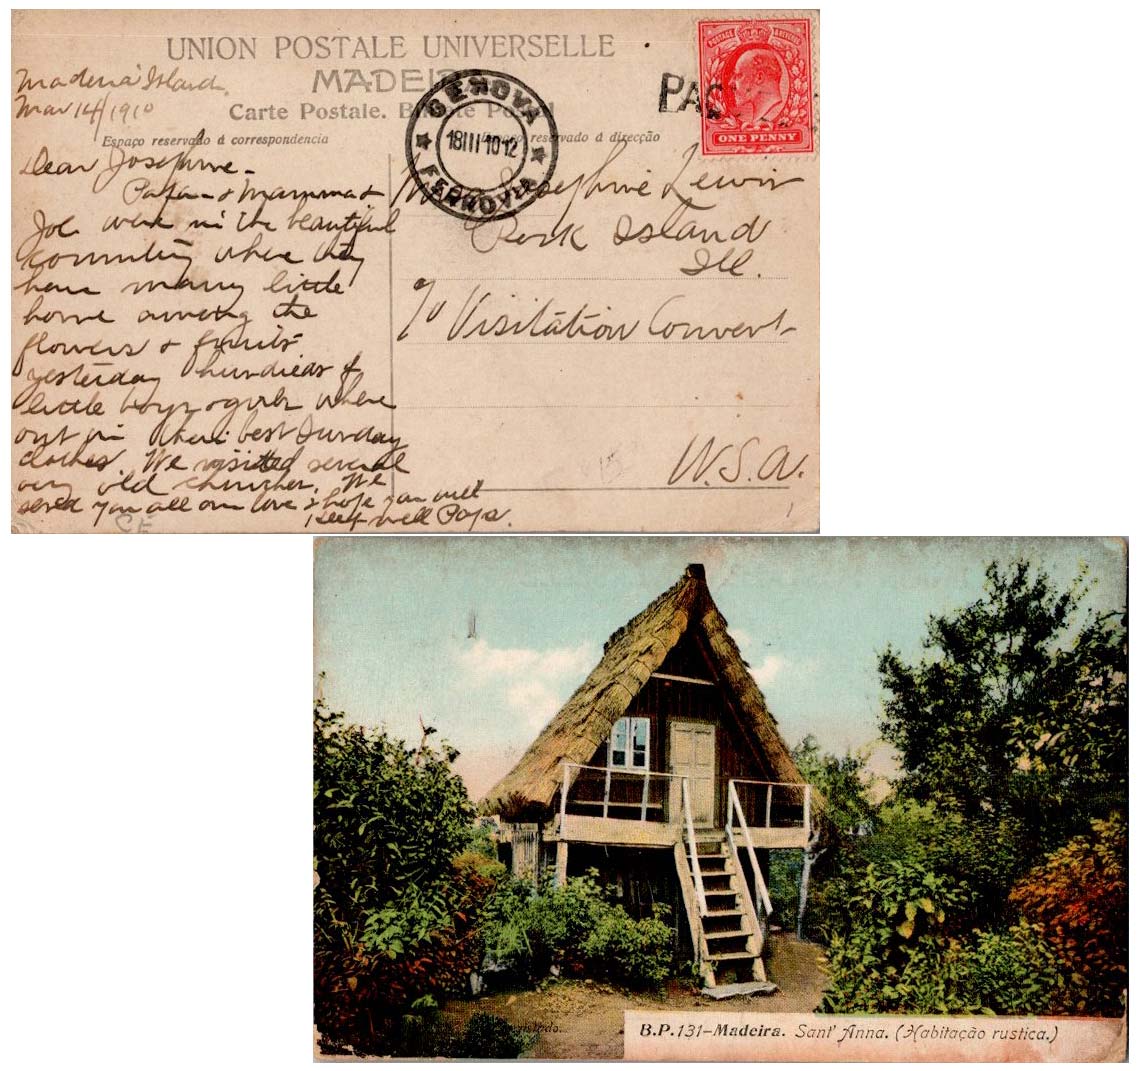 UNION POSTALE UNIVERSELLE
MADEI
Carte Postale. Bilhete Postal
Espaço reservado á correspondencia
Espaço reservado á direcção
Maderia Island.
Mar 14/1910
Dear Josephine -
Papa - & Mamma &
Joe were in the beautiful
country where they
have many little
home among the
flowers & fruits
yesterday hundreds of
little boys & girls where
out in their best Sunday
clothes. We visited several
very old churches. We
send you all our love & hope you will
keep well Papa.
CE
GENOVA
18 III 10-12
FERROVIA
PAQ
POSTAGE REVENUE
ONE PENNY
Josephine Lewis
Rock Island
Ill.
c/o Visitation Convent
U.S.A.
B.P. 131-Madeira. Sant' Anna. (Habitação rustica.)